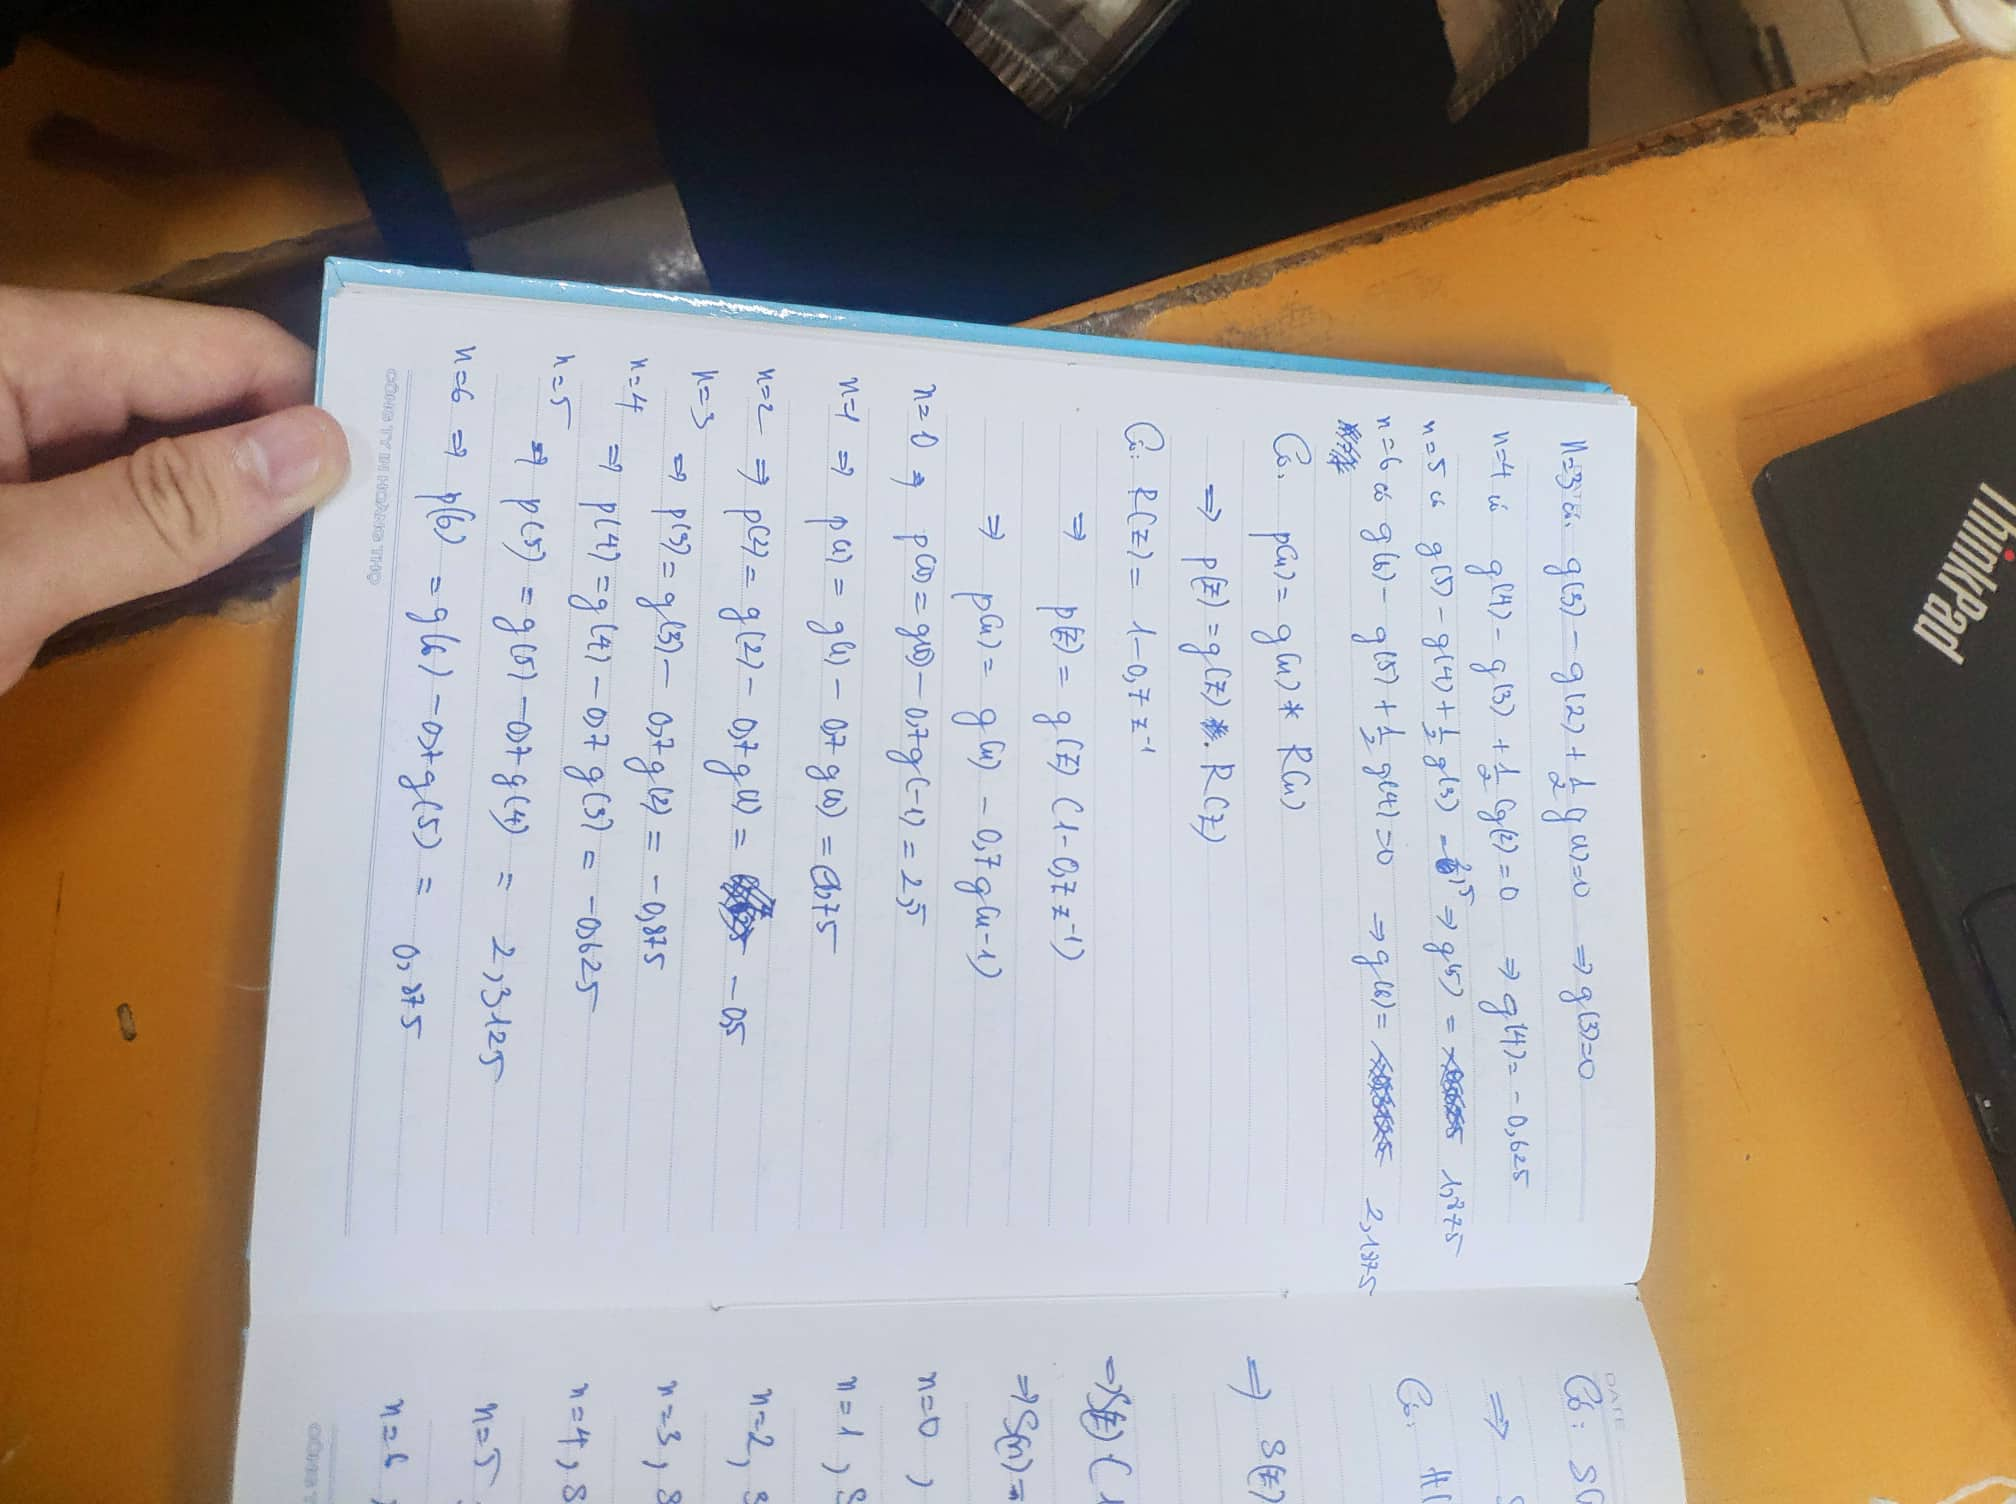 n=3 có g(3) - g(2) + 1/2 g(1) = 0 ⇒ g(3) = 0
n=4 có g(4) - g(3) + 1/2 g(2) = 0 ⇒ g(4) = -0,625
n=5 có g(5) - g(4) + 1/2 g(3) = 2,5 ⇒ g(5) = 1,875
n=6 có g(6) - g(5) + 1/2 g(4) = 0 ⇒ g(6) = 2,1875
Có: p(n) = g(n) * R(n)
⇒ p(z) = g(z) . R(z)
Có: R(z) = 1 - 0,7 z⁻¹
⇒ p(z) = g(z) (1 - 0,7 z⁻¹)
⇒ p(n) = g(n) - 0,7 g(n-1)
n=0 ⇒ p(0) = g(0) - 0,7 g(-1) = 2,5
n=1 ⇒ p(1) = g(1) - 0,7 g(0) = 0,75
n=2 ⇒ p(2) = g(2) - 0,7 g(1) = -0,5
n=3 ⇒ p(3) = g(3) - 0,7 g(2) = -0,875
n=4 ⇒ p(4) = g(4) - 0,7 g(3) = -0,625
n=5 ⇒ p(5) = g(5) - 0,7 g(4) = 2,3125
n=6 ⇒ p(6) = g(6) - 0,7 g(5) = 0,875
CÔNG TY IN HOÀNG THỌ
DATE
Có: S(
⇒ S
Có: H(
⇒ S(z)
⇒ S(z) (1
⇒ S(n) =
n=0 ,
n=1 , S
n=2, S
n=3, S
n=4, S
n=5
n=6 ,
CÔNG T
ThinkPad